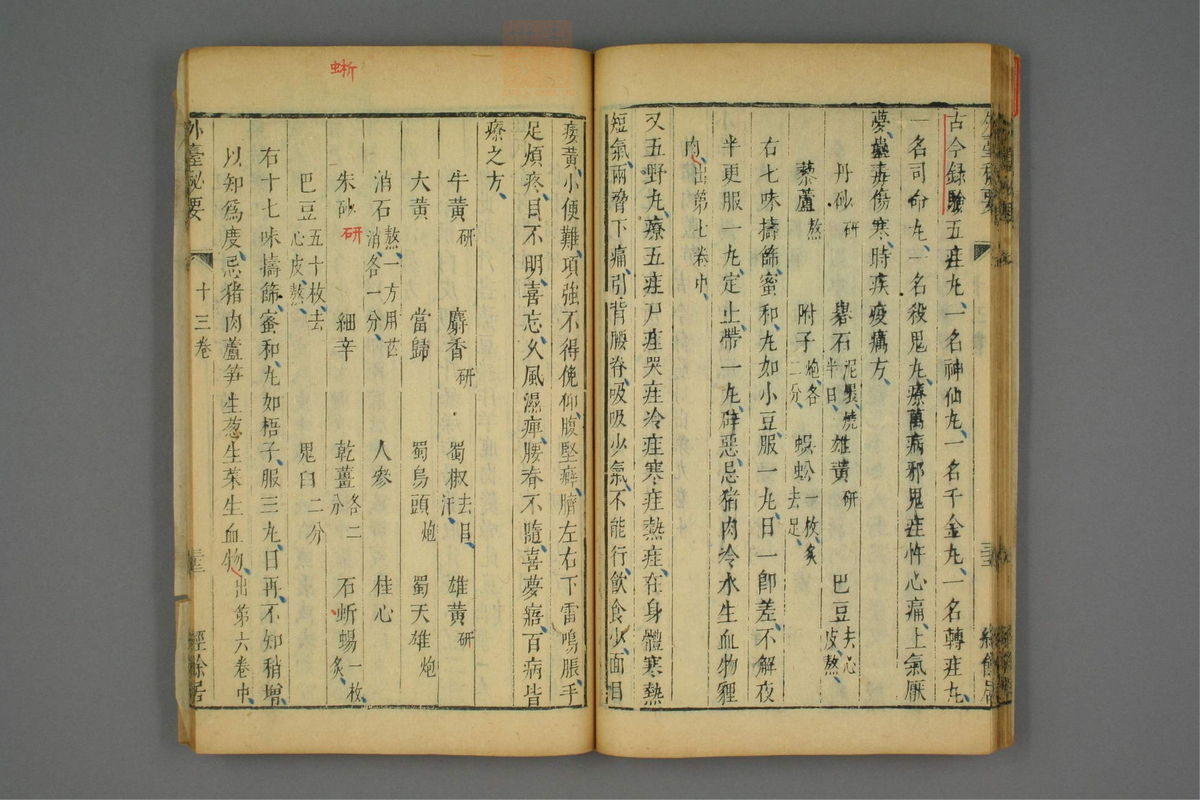 古今錄驗五疰丸一名神仙丸一名千金丸一名轉疰丸
一名司命丸一名殺鬼丸療萬病邪鬼疰忤心痛上氣厥
夢蠱毒傷寒時疾疫癘方
丹砂研 礜石泥裹燒半日 雄黃研 巴豆去心皮熬
藜蘆熬 附子炮各二分 蜈蚣一枚炙去足
右七味擣篩蜜和丸如小豆服一丸日一卽差不解夜
半更服一丸定止帶一丸辟惡忌猪肉冷水生血物貍
肉出第七卷中
又五野丸療五疰尸疰哭疰冷疰寒疰熱疰在身體寒熱
短氣兩脅下痛引背腰脊吸吸少氣不能行飲食少面目
痿黃小便難項強不得俛仰腹堅癖臍左右下雷鳴脹手
足煩疼目不明喜忘久風濕痺腰脊不隨喜夢寤百病皆
療之方
牛黃研 麝香研 蜀椒去目汗 雄黃研
大黃 當歸 蜀烏頭炮 蜀天雄炮
消石熬一方用芒消各一分 人參 桂心
朱砂研 細辛 乾薑各二分 石蚚蜴一枚炙
巴豆五十枚去心皮熬 鬼臼二分
右十七味擣篩蜜和丸如梧子服三丸日再不知稍增
以知爲度忌猪肉蘆笋生葱生菜生血物出第六卷中
外臺秘要 十三卷 經餘居
蜥
研